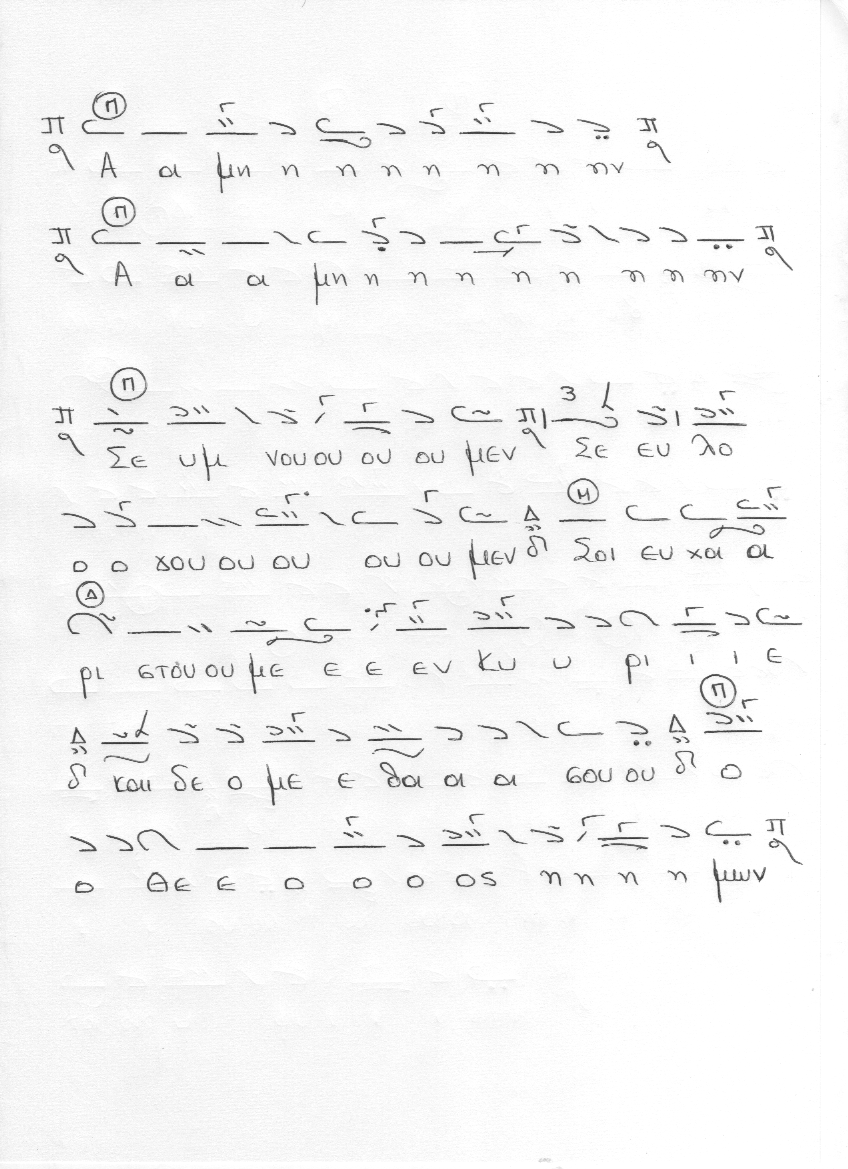 Α α μη η η η η η η ην
Α α α μη η η η η η η η ην
Σε υμ νου ου ου ου μεν Σε ευ λο
ο ο γου ου ου ου ου μεν Σοι ευ χα α
ρι στου ου με ε ε εν Κυ υ ρι ι ι ε
και δε ο με ε θα α α σου ου ο
ο Θε ε ο ο ο ος η η η η μων